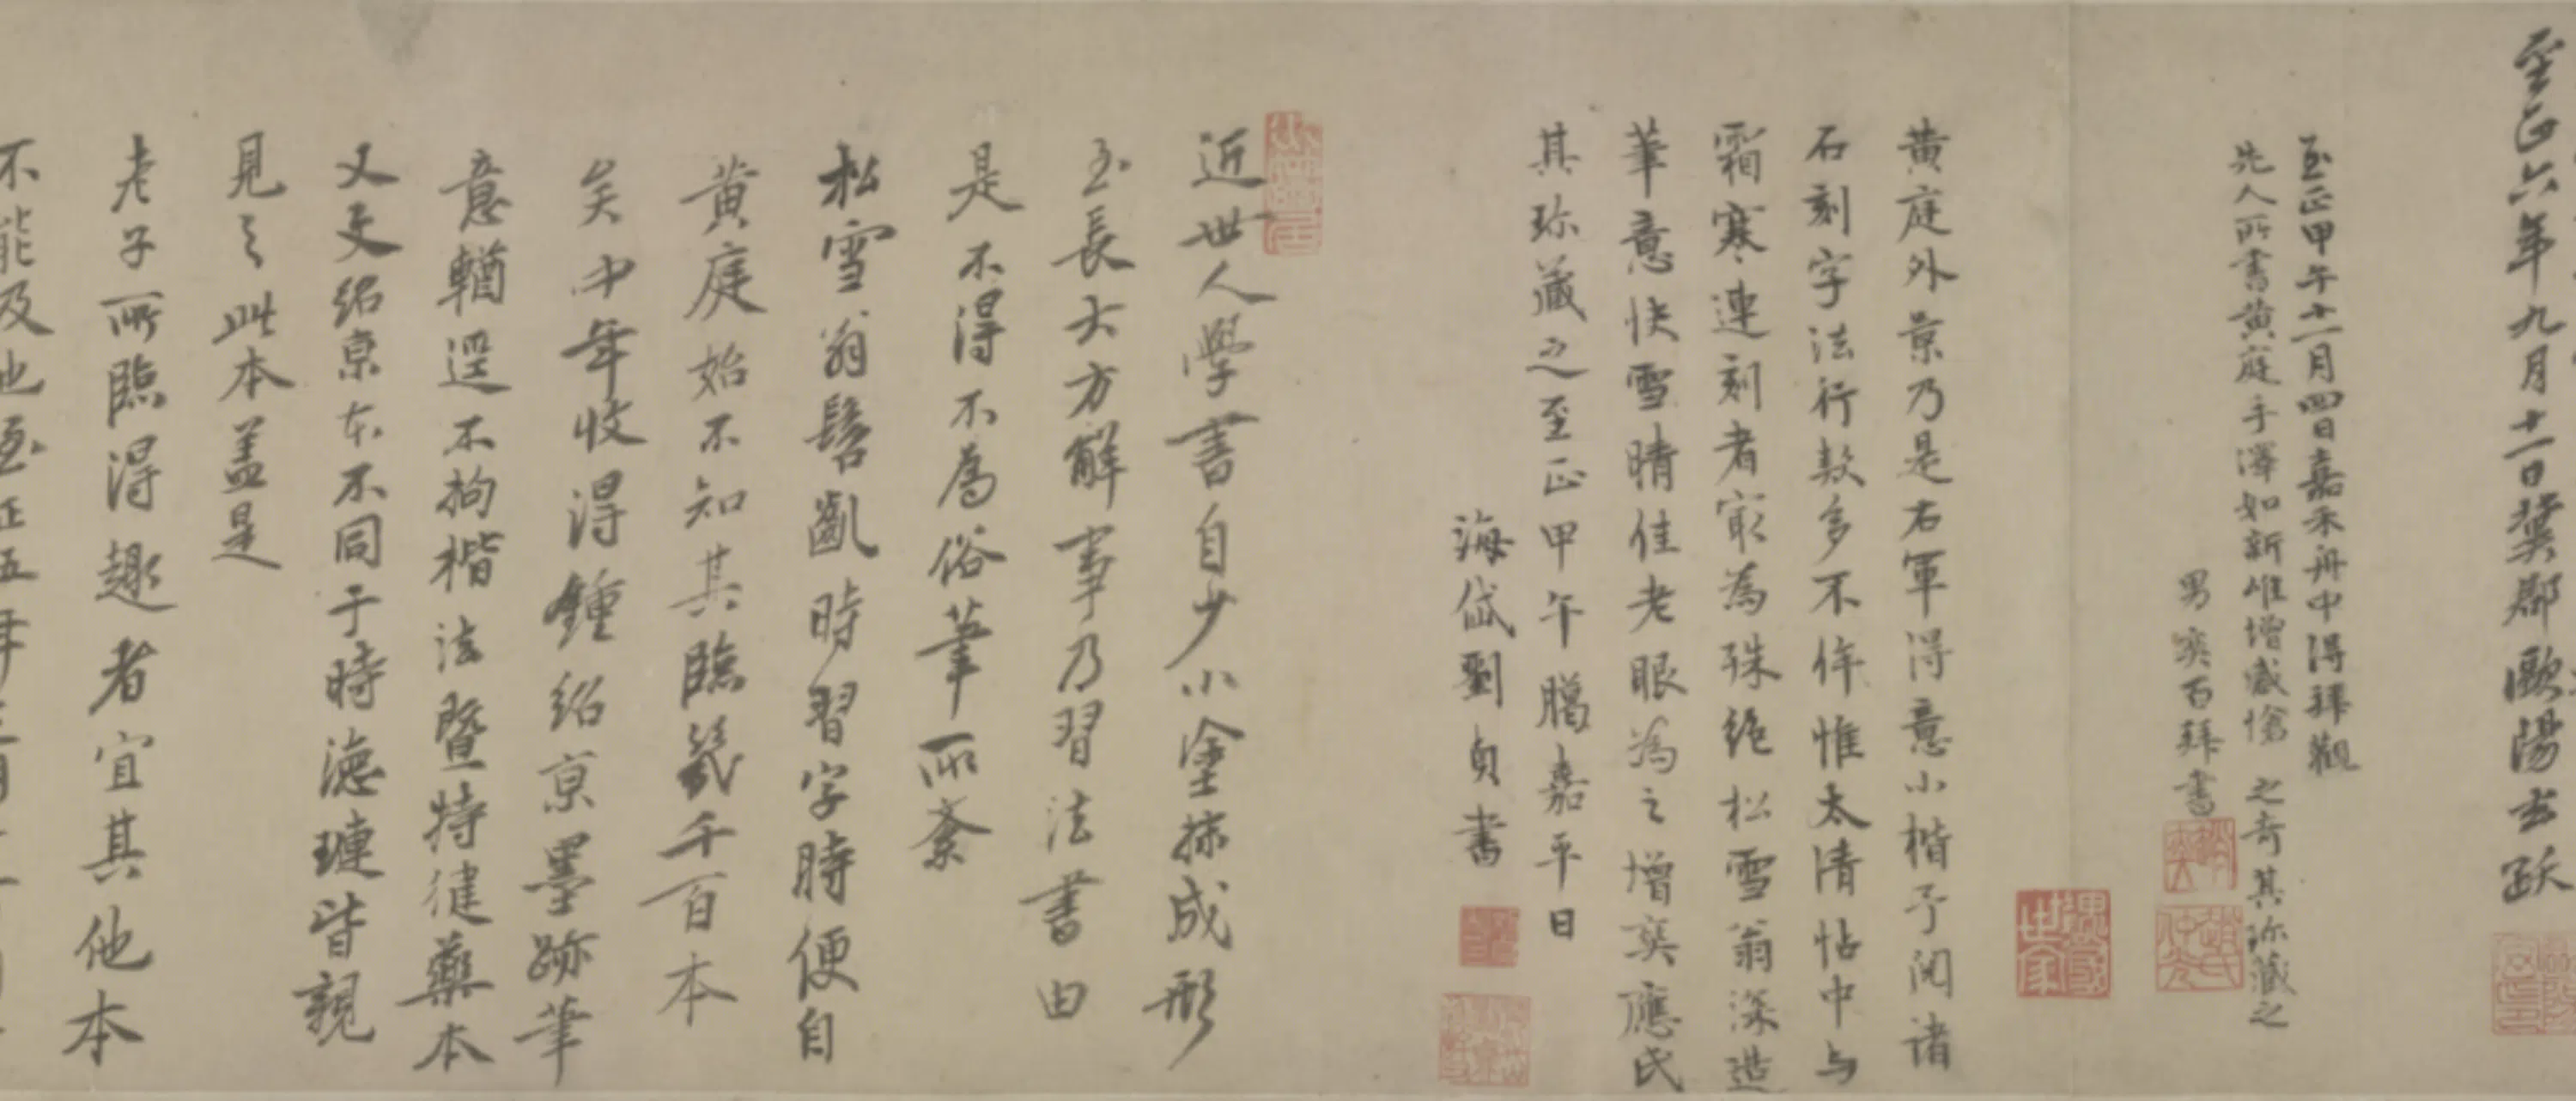 至正六年九月十一日冀郡歐陽玄跋
至正甲午十一月四日嘉禾舟中得拜觀
先人所書黃庭手澤如新惟增感愴 之奇其珎藏之
男奕百拜書
黃庭外景乃是右軍得意小楷予閱諸
石刻字法行款多不侔惟太清帖中与
霜寒連刻者寂為殊绝松雪翁深造
筆意快雪晴佳老眼為之增爽應氏
其珎藏之至正甲午臈嘉平日
海岱劉貞書
近世人學書自少小塗抹成形
至長大方解事乃習法書由
是不得不為俗筆所紊
松雪翁髫齓時習字時便自
黃庭始不知其臨幾千百本
矣中年收得鍾紹京墨跡筆
意輶逕不拘楷法暨特健藥本
又叏紹京本不同于時德璉皆親
見之此本盖是
老子所臨得趣者宜其他本
不能及也至正五年